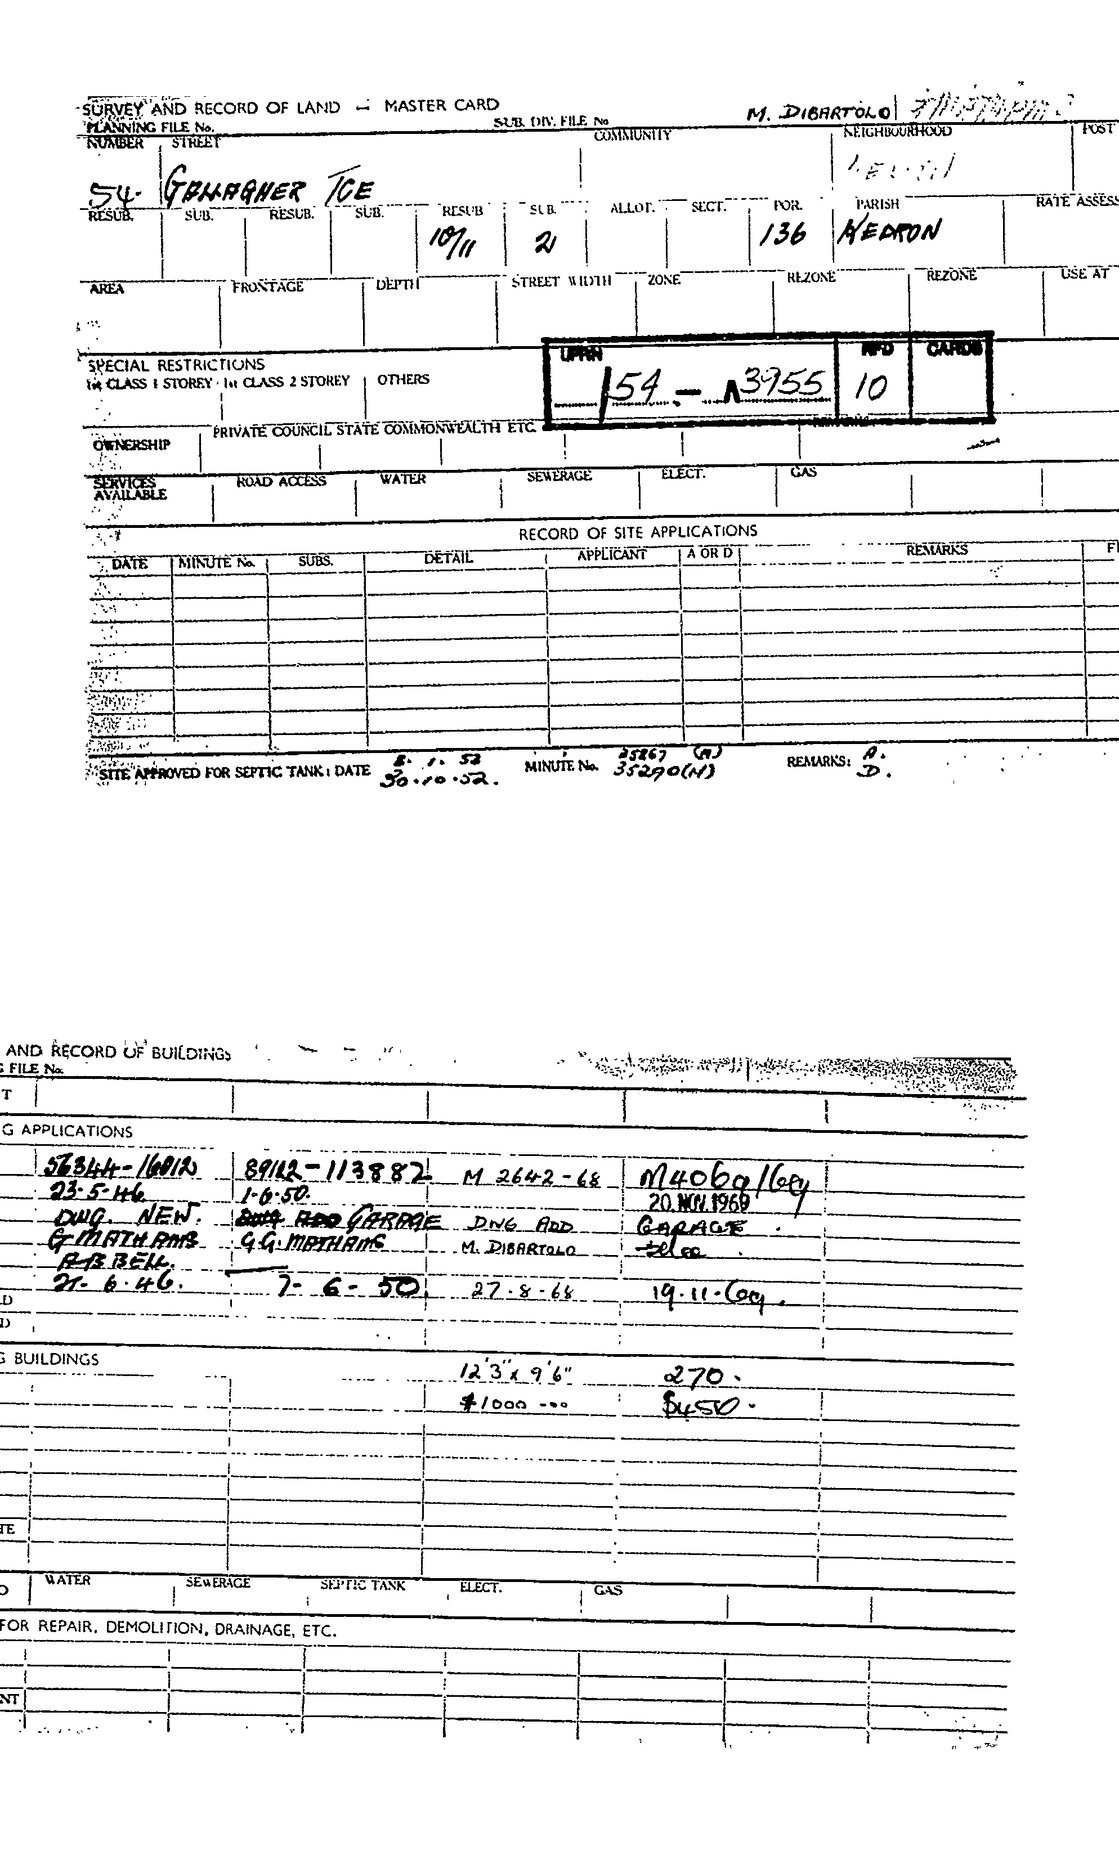 SURVEY AND RECORD OF LAND — MASTER CARD
M. DIBARTOLO
PLANNING FILE No. SUB. DIV. FILE No
NUMBER STREET COMMUNITY NEIGHBOURHOOD POST
54. GALLAGHER TCE
RESUB. SUB. RESUB. SUB. RESUB SUB. ALLOT. SECT. POR. PARISH RATE ASSESS
10/11 2 136 KEDRON
AREA FRONTAGE DEPTH STREET WIDTH ZONE REZONE REZONE USE AT
SPECIAL RESTRICTIONS
UPRN RFD CARDS
1st CLASS 1 STOREY 1st CLASS 2 STOREY OTHERS
154 - 3955 10
OWNERSHIP PRIVATE COUNCIL STATE COMMONWEALTH ETC.
SERVICES AVAILABLE ROAD ACCESS WATER SEWERAGE ELECT. GAS
RECORD OF SITE APPLICATIONS
DATE MINUTE No. SUBS. DETAIL APPLICANT A OR D REMARKS
8. 1. 52 35267 (A) A.
SITE APPROVED FOR SEPTIC TANK: DATE MINUTE No. REMARKS:
30.10.52. 35290(H) D.
AND RECORD OF BUILDINGS
FILE No.
T
G APPLICATIONS
56344-16012 89122-113882 M 2642-68 M4069/69
23.5.46 1.6.50. 20. NOV. 1969
DWG. NEW. DWG ADD GARAGE DWG ADD GARAGE
G MATHAMS G.G. MATHAMS M. DIBARTOLO
A B BELL.
21. 6. 46. 7-6-50. 27.8-68 19.11.69.
D
D
G BUILDINGS
12'3" x 9'6" 270.
$1000 $450.
TE
O WATER SEWERAGE SEPTIC TANK ELECT. GAS
FOR REPAIR, DEMOLITION, DRAINAGE, ETC.
NT